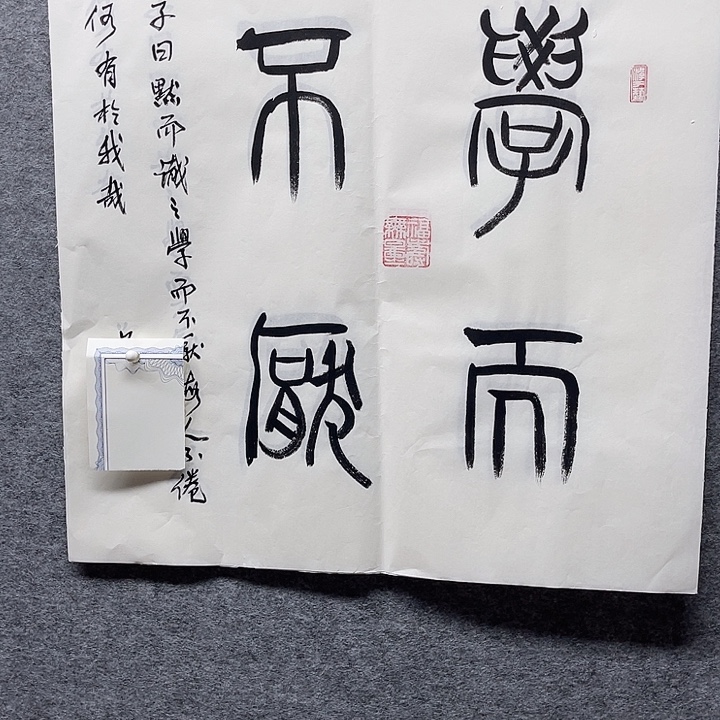 學而
不厭
子曰默而識之學而不厭誨人不倦
何有於我哉